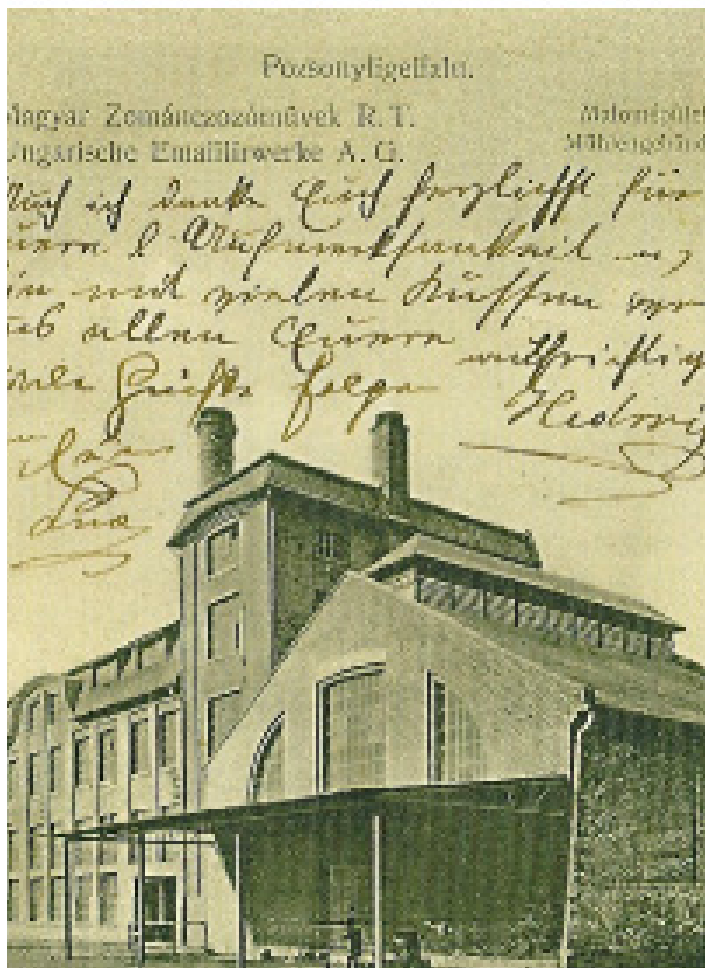 Pozsonyligetfalu.
Magyar Zománczozóművek R. T.
Ungarische Emaillirwerke A. G.
Malomépület
Mühlengebäude
Auch ich danke Euch herzlichst für
l. Aufmerksamkeit u.
mit vielen Küssen von
allen Eueren aufrichtig
Grüße folgen Hedwig